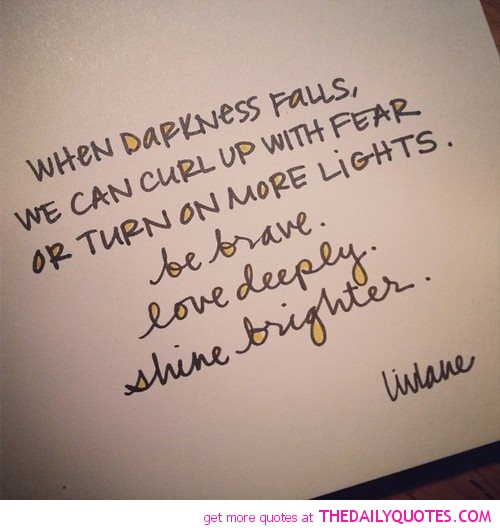 WHEN DARKNESS FALLS,
WE CAN CURL UP WITH FEAR
OR TURN ON MORE LIGHTS.
be brave.
love deeply.
shine brighter.
liviane
get more quotes at THEDAILYQUOTES.COM